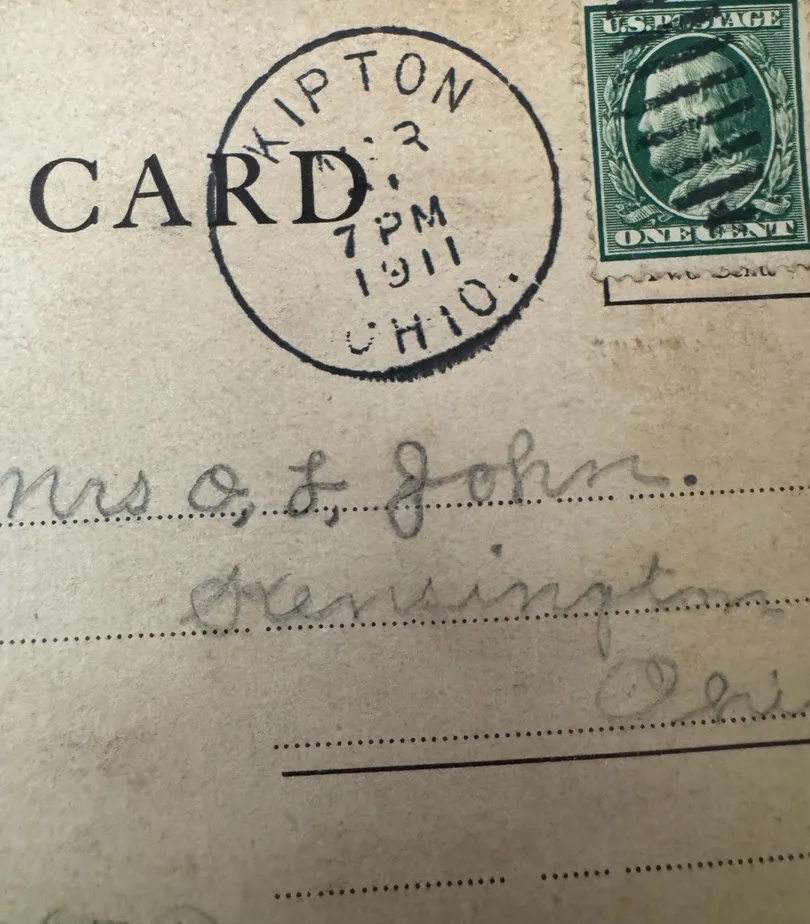 U.S. POSTAGE
KIPTON
CARD
7 PM
1911
OHIO.
ONE CENT
Mrs O, L, John.
Kensington
Ohi